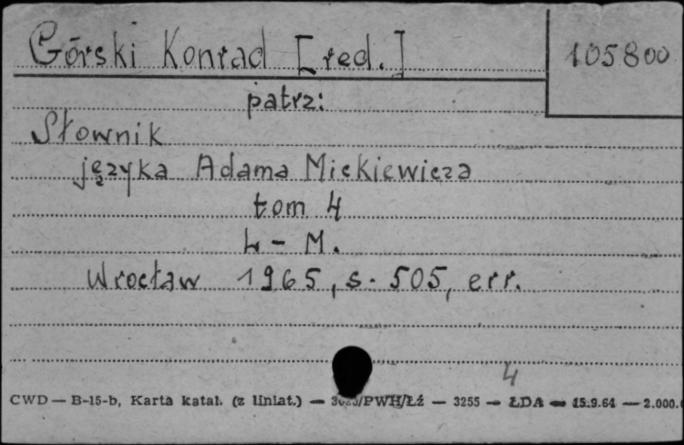 Górski Konrad [red.]
105800
patrz:
Słownik
języka Adama Mickiewicza
tom 4
L - M.
Wrocław 1965, s. 505, err.
4
CWD — B-15-b, Karta katal. (z liniat.) — /PWH/Łż — 3255 — ŁDA — 15.9.64 — 2.000.